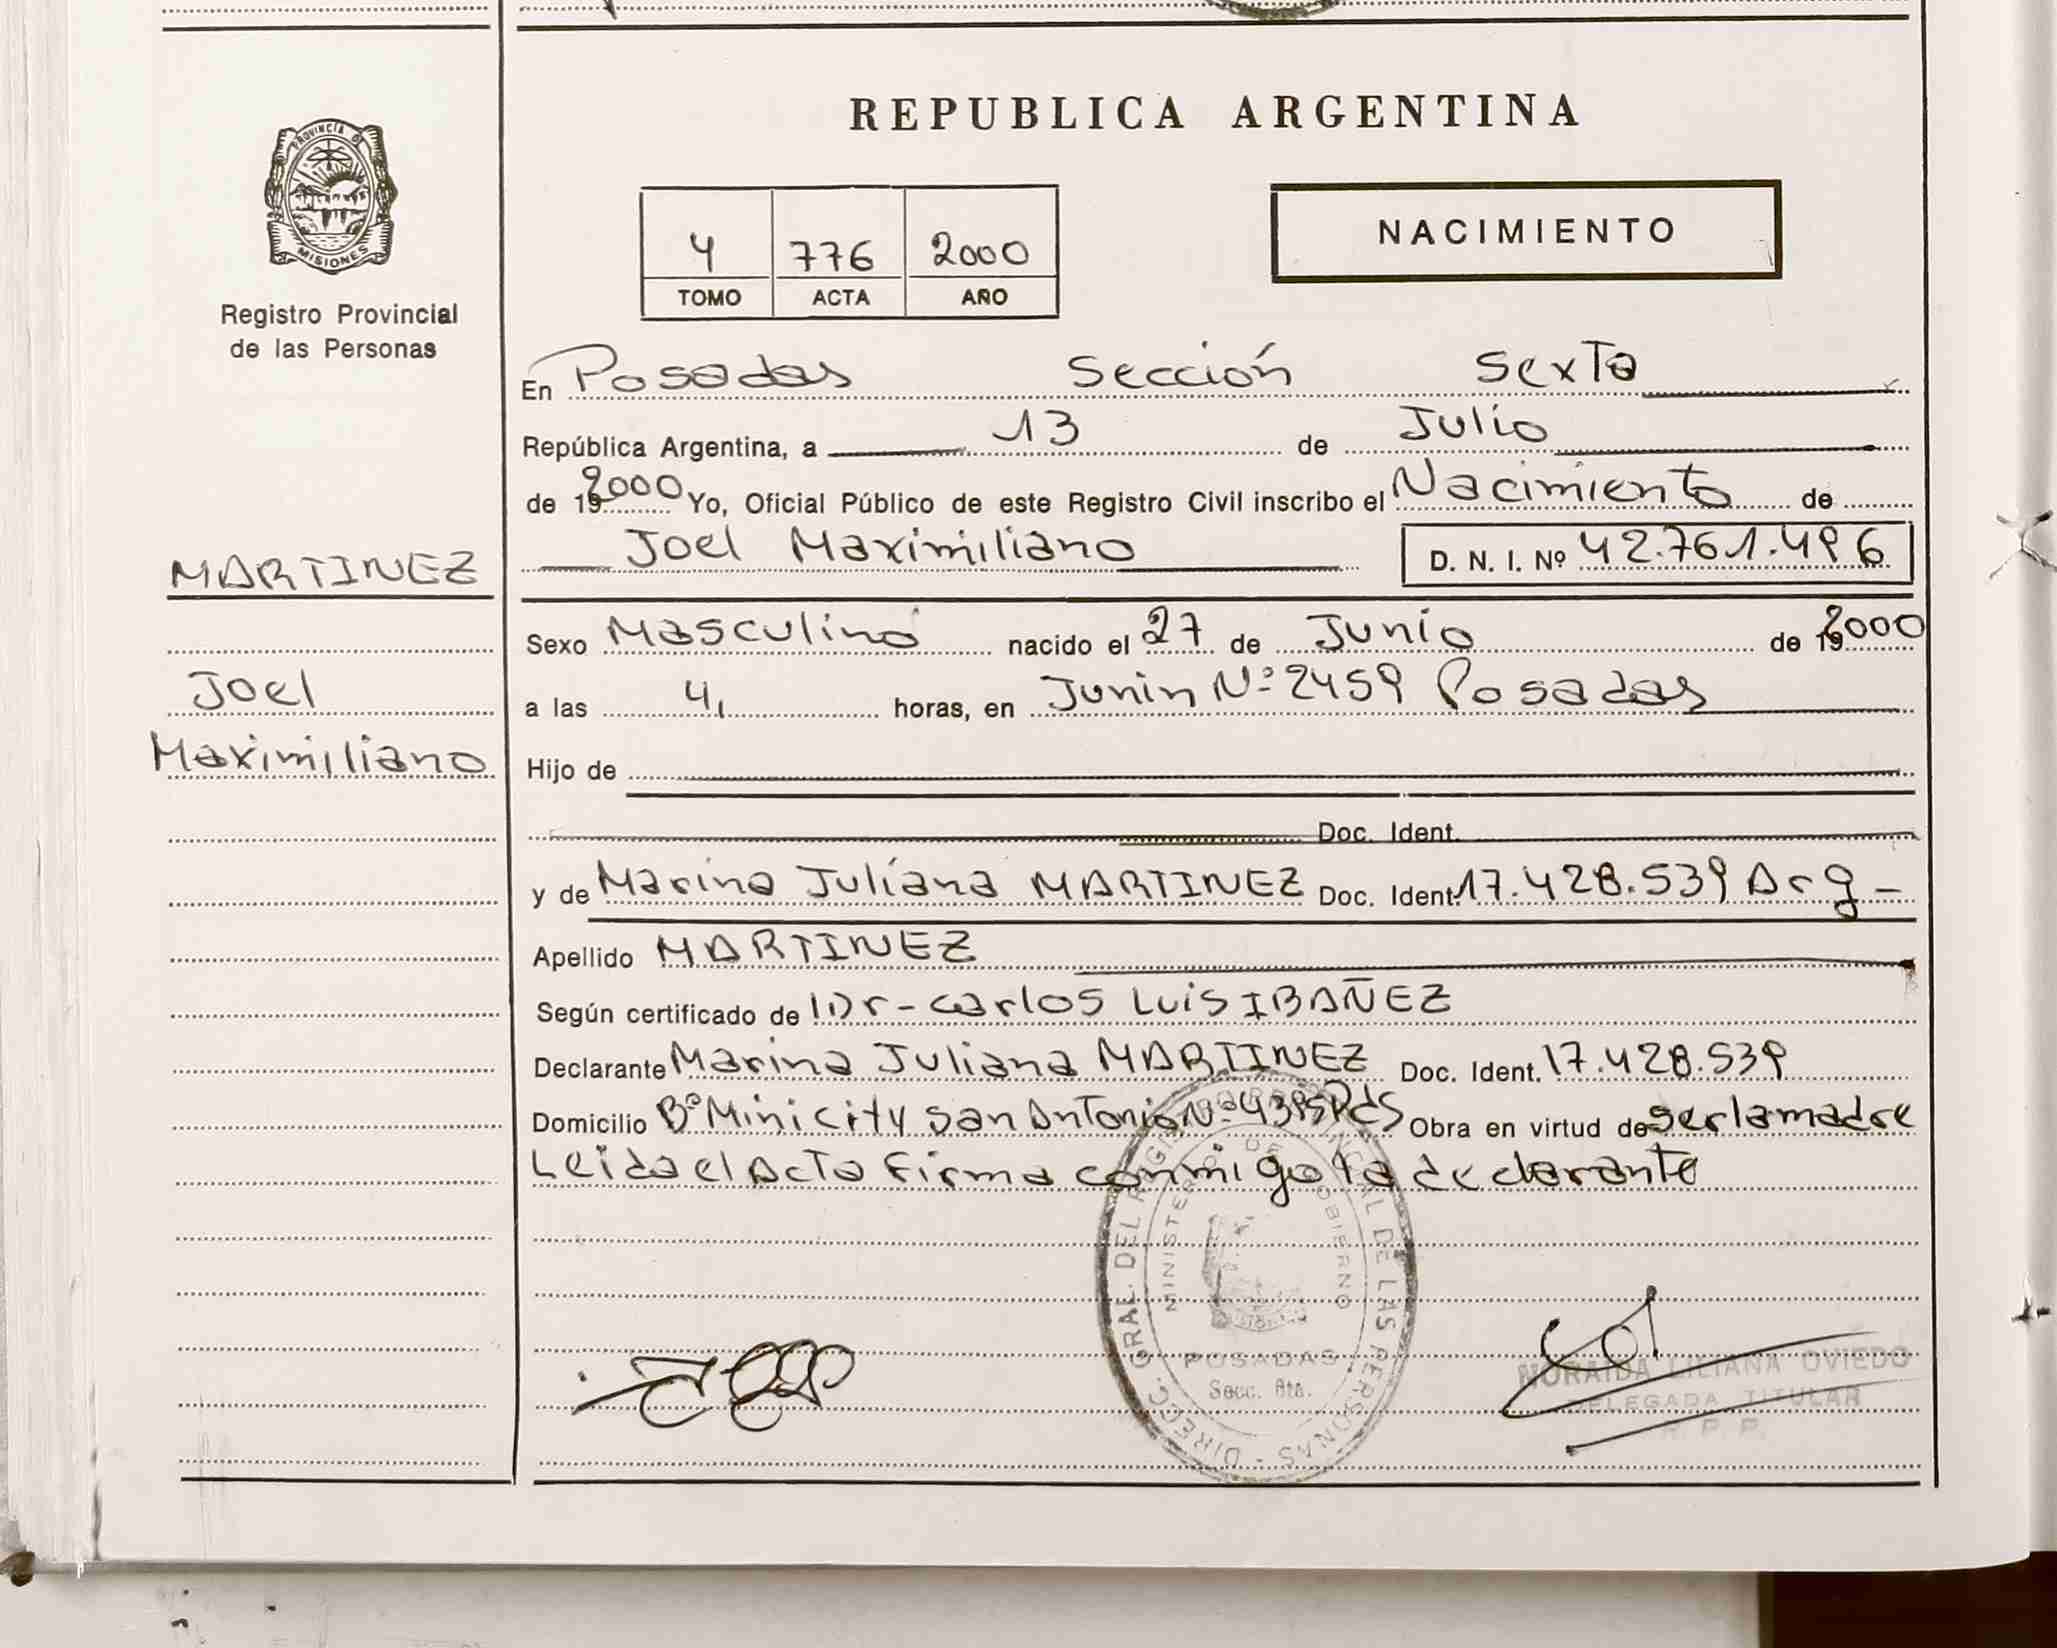 PROVINCIA DE
MISIONES
Registro Provincial
de las Personas
MARTINEZ
Joel
Maximiliano
REPUBLICA ARGENTINA
4 776 2000
TOMO ACTA AÑO
NACIMIENTO
En Posadas Sección Sexta
República Argentina, a 13 de Julio
de 192000 Yo, Oficial Público de este Registro Civil inscribo el Nacimiento de
Joel Maximiliano D. N. I. Nº 42.761.496
Sexo Masculino nacido el 27 de Junio de 192000
a las 4, horas, en Junin Nº 2459 Posadas
Hijo de
Doc. Ident.
y de Marina Juliana MARTINEZ Doc. Ident. 17.428.539 Arg-
Apellido MARTINEZ
Según certificado de Dr-Carlos Luis IBAÑEZ
Declarante Marina Juliana MARTINEZ Doc. Ident. 17.428.539
Domicilio Bº Mini city San Antonio Nº 4395 Pds Obra en virtud de ser la madre
Leida el Acta firma conmigo la declarante
DIRECC. GRAL. DEL REGISTRO PROVINCIAL DE LAS PERSONAS -
MINISTERIO DE GOBIERNO
POSADAS
Secc. 6ta.
NORAIDA LILIANA OVIEDO
DELEGADA TITULAR
R. P. P.